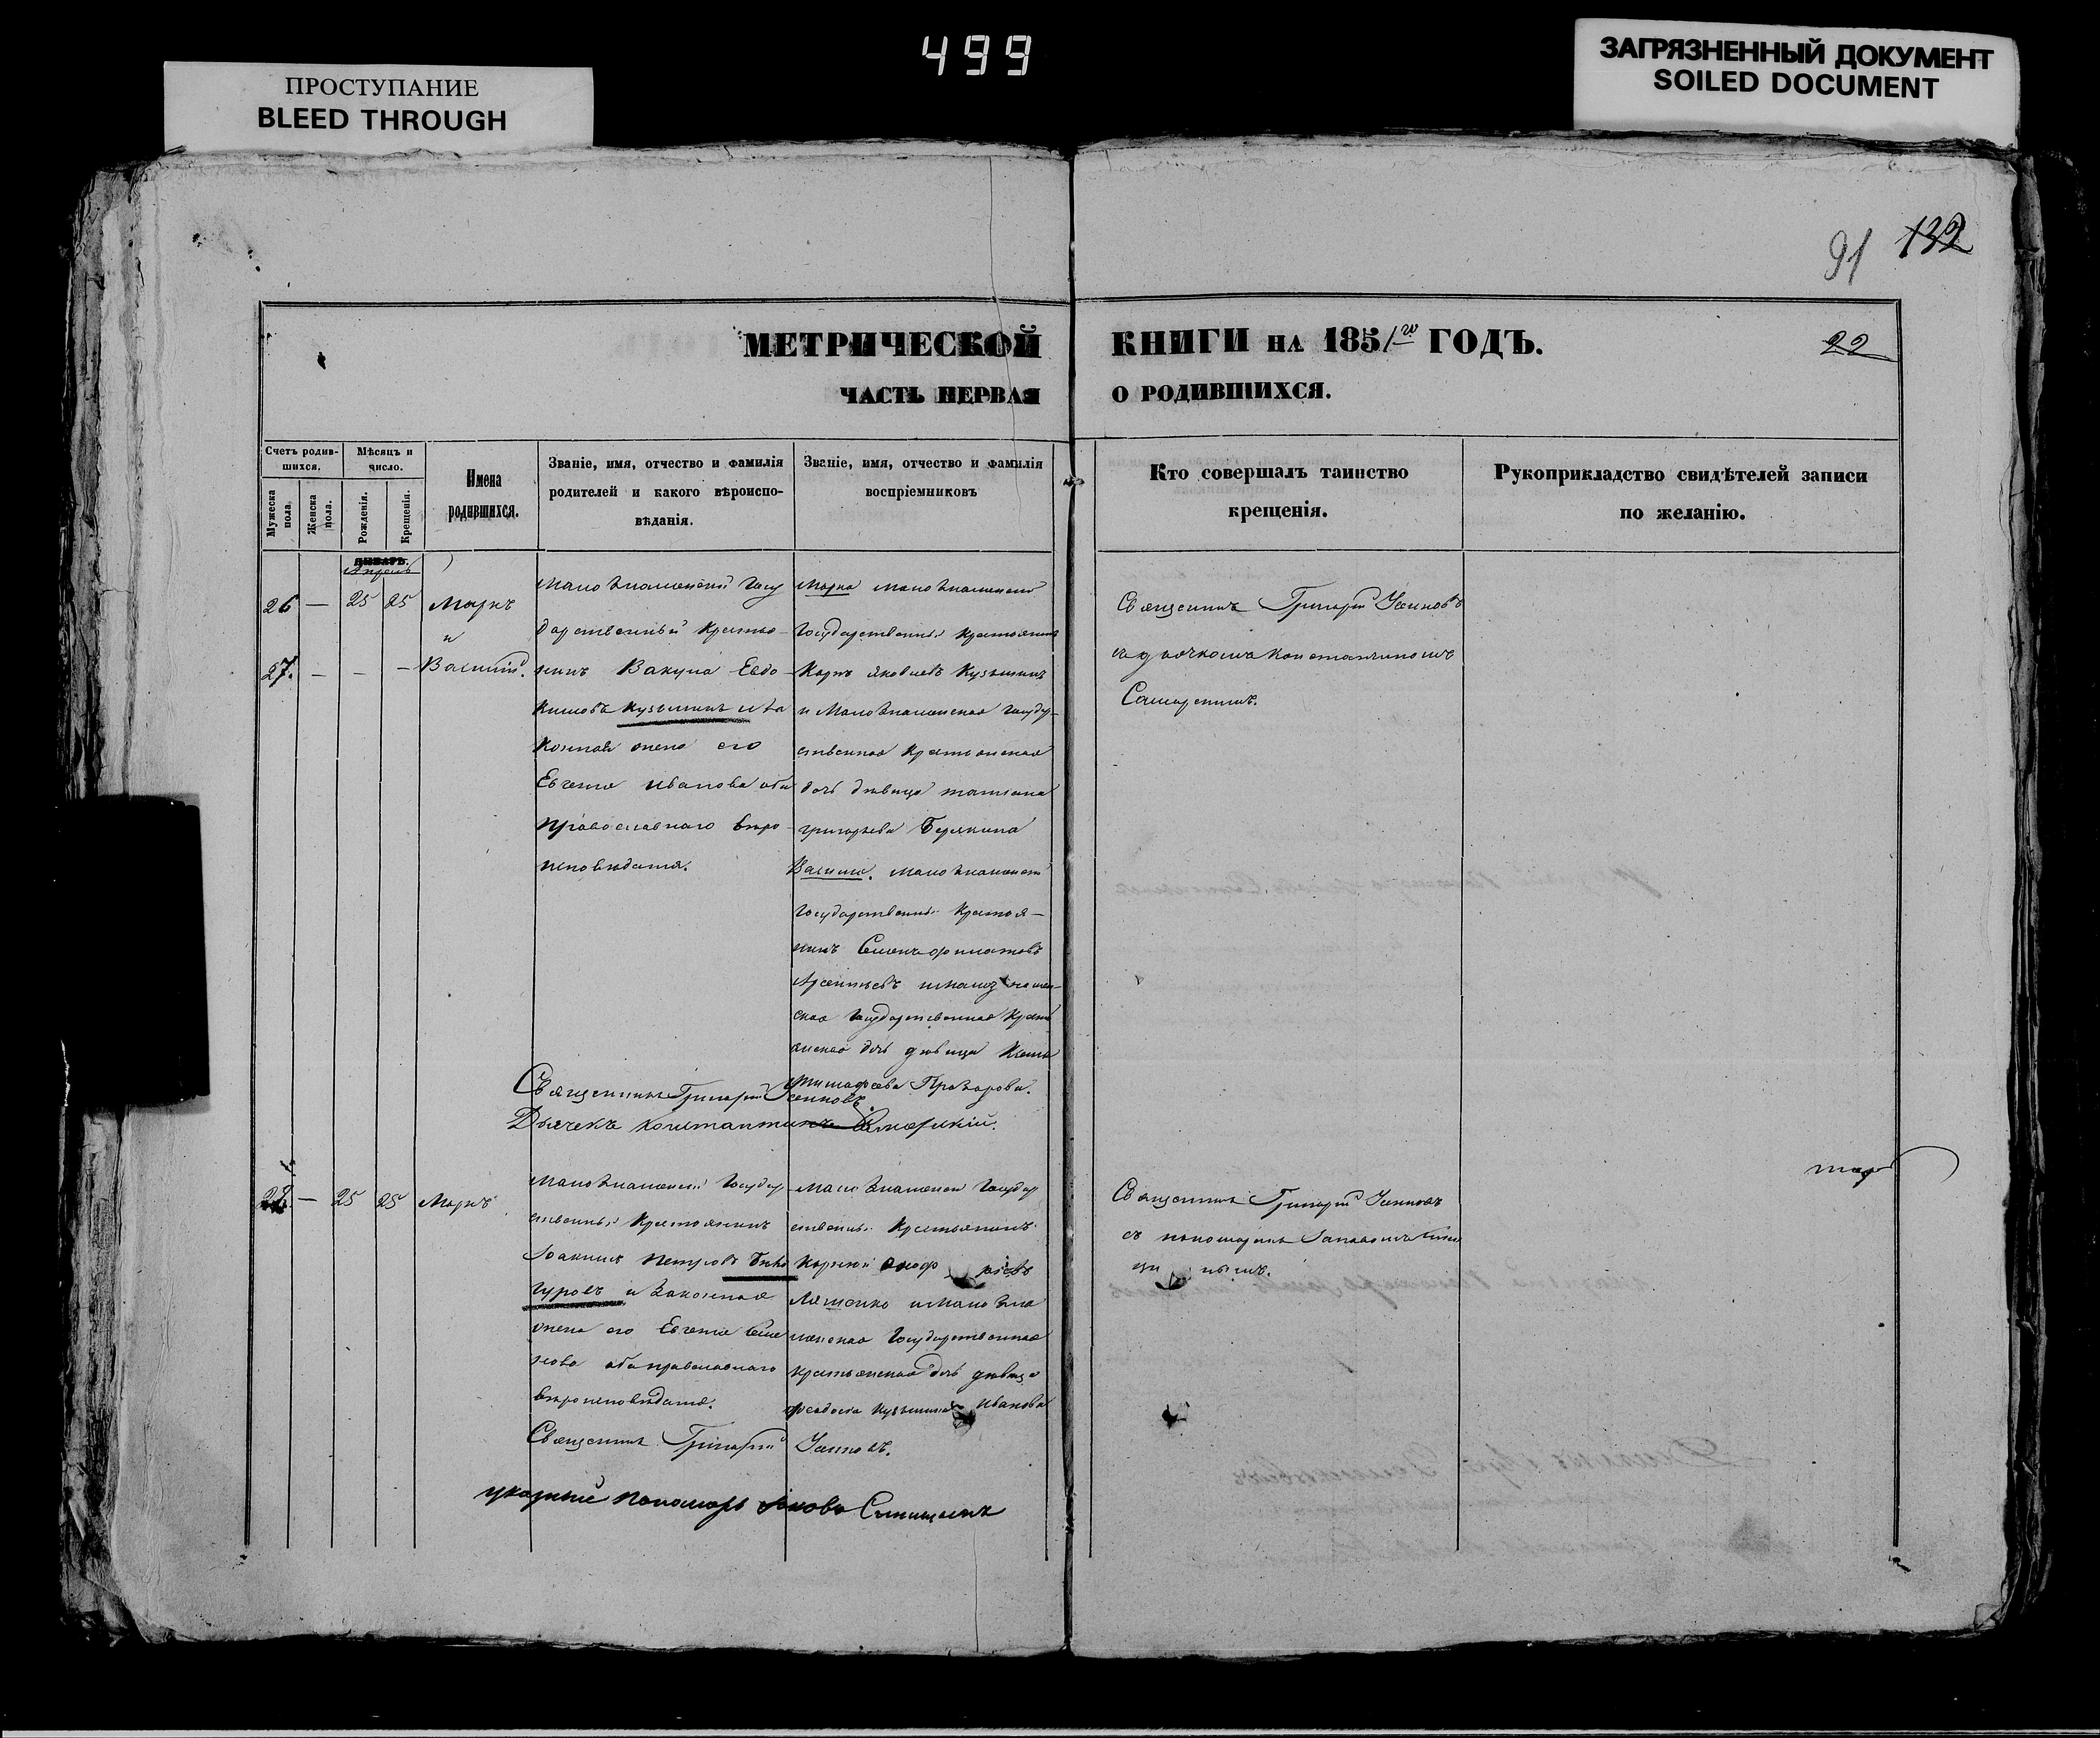 499
ПРОСТУПАНИЕ
BLEED THROUGH
ЗАГРЯЗНЕННЫЙ ДОКУМЕНТ
SOILED DOCUMENT
91 132
МЕТРИЧЕСКОЙ КНИГИ на 1851 го ГОДЪ.
22
ЧАСТЬ ПЕРВАЯ О РОДИВШИХСЯ.
Счетъ родив-
шихся.
Мужеска
пола.
Женска
пола.
Мѣсяцъ и
число.
Рожденія.
Крещенія.
Имена
родившихся.
Званіе, имя, отчество и фамилія
родителей и какого вѣроиспо-
вѣданія.
Званіе, имя, отчество и фамилія
воспріемниковъ
Кто совершалъ таинство
крещенія.
Рукоприкладство свидѣтелей записи
по желанію.
ЯНВАРЬ.
Апрель
26 — 25 25 Маркъ
и
27. — — — Василій.
Малознаменскій Госу
дарственный крестья-
нинъ Вакула Евдо-
кимовъ Кузьминъ и за
конная жена его
Евгенія Иванова оба
православнаго вѣро-
исповѣданія.
Марка Малознаменскій
Государственный крестьянинъ
Карпъ Яковлевъ Кузьминъ
и Малознаменская Государ-
ственная крестьянская
дочь дѣвица Татіана
Григорьева
Василія. Малознаменскій
Государственный крестья-
нинъ Семенъ Филатовъ
Арсеньевъ и Малознамен-
ская Государственная крестья
янская дочь дѣвица
Тимофеева
Священникъ Григорій
съ дьячкомъ Константиномъ
Самарскимъ.
Священникъ Григорій
Дьячекъ Константинъ Самарскій.
28 — 25 25 Маркъ
Малознаменскій Государ
ственный крестьянинъ
Іоакимъ Петровъ
и законная
жена его Евгенія Семе
нова оба православнаго
вѣроисповѣданія.
Малознаменскій Государ
ственный крестьянинъ
Корній
Ляшенко и Малозна
менская Государственная
крестьянская дочь дѣвица
Феодосія Кузьмина Иванова
Священникъ Григорій
съ пономаремъ
Священникъ Григорій
указный пономарь Яковъ